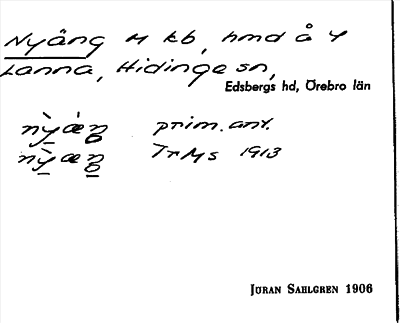 Nyång M kb, hmd å Y
Lanna, Hidinge sn,
Edsbergs hd, Örebro län
nỳ̠áŋ̠ prim. ant.
nỳ̠æŋ̠ TrMs 1913
JÖRAN SAHLGREN 1906